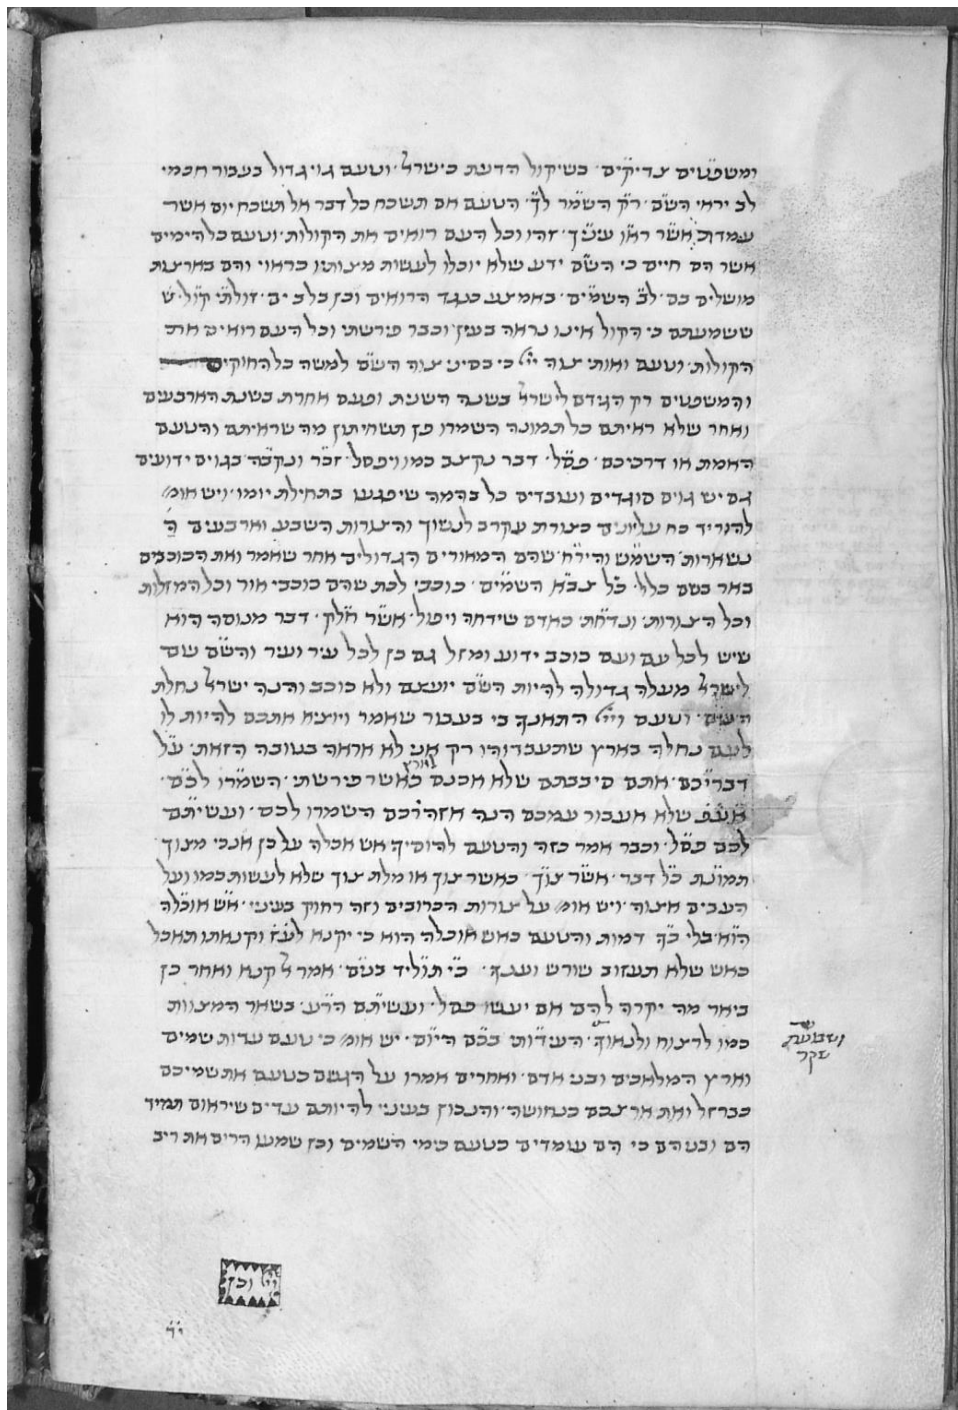 ומשפטים צדיקים · בשיקול הדעת בישרא' · וטעם גוי גדול בעבור חכמי
לב יראי השם · רק השמר לך · הטעם אם תשכח כל דבר אל תשכח יום אשר
עמדת אשר ראו עיניך · זהו וכל העם רואים את הקולות · וטעם כל הימים
אשר הם חיים כי השם ידע שלא יוכלו לעשות מצותו כראוי והם בארצות
מושלים בם · לב השמים · באמצע כנגד הרואים וכן בלב ים · זולתי קול · ש
ששמעתם כי הקול איננו נראה בעין וכבר פירשתי וכל העם רואים את
הקולות · וטעם ואותי צוה יי' כי בסיני צוה השם למשה כל החוקים
והמשפטים רק הגידם לישרא' בשנה השנית ופעם אחרת בשנת הארבעים
ואחר שלא ראיתם כל תמונה השמרו פן תשחיתון מה שראיתם והטעם
האמת או דרכיכם · פסל · דבר נקצב כמו ויפסל · זכר ונקבה · בגוים ידועים
גם יש גוים סוגדים ועובדים כל בהמה שיפגעו בתחילת יומו · ויש אומ'
להוריד כח עליונים בצורת עקרב לנשוך והצורות השבע וארבעים ה'
נשארות · השמש והירח · שהם המאורים הגדולים אחר שאמר ואת הכוכבים
באר בסם כלל · כל צבא השמים · כוכבי לכת שהם כוכבי אור וכל המזלות
וכל הצורות · ונדחת · כאדם שידחה ויפול · אשר חלק · דבר מנוסה הוא
שיש לכל עם ועם כוכב ידוע ומזל גם כן לכל עיר ועיר והשם שם
לישרא' מעלה גדולה להיות השם יועצם ולא כוכב והנה ישרא' נחלת
השם · וטעם ויי' התאנף בי בעבור שאמר ויוציא אתכם להיות לו
לעם נחלה בארץ שתעבדוהו רק אני לא אראה בטובה הזאת · על
דבריכם · אתם סיבבתם שלא אכנס לארץ כאשר פירשתי · השמרו לכם ·
שלא אעבור עמכם הנה אזהרכם השמרו לכם · ועשיתם
לכם פסל · וכבר אמר כזה והטעם להוסיף אש אכלה על כן אנכי מצוך
תמונת כל דבר · אשר צוך · כאשר צוך או מלת צוך שלא לעשות כמו ועל
העבים אצוה · ויש אומ' על צורות הכרובים וזה רחוק בעיני · אש אוכלה
הוא · בלי כף דמות והטעם כאש אוכלה הוא כי יקנא לעז וקנאתו תאכל
כאש שלא תעזוב שורש וענף · כי תוליד בנים · אמר אל קנא ואחר כן
ביאר מה יקרה להם אם יעשו פסל · ועשיתם הרע · בשאר המצוות
כמו לרצוח ולנאוף · העדותי בכם היום · יש אומ' כי טעם עדות שמים
וארץ המלאכים ובני אדם · ואחרים אמרו על הגשם כטעם את שמיכם
כברזל ואת ארצכם כנחושה · והנכון בעיני להיותם עדים שיראום תמיד
הם ובניהם כי הם עומדים כטעם כימי השמים וכן שמעו הרים את ריב
ושבועת
שקר
יי' וכן